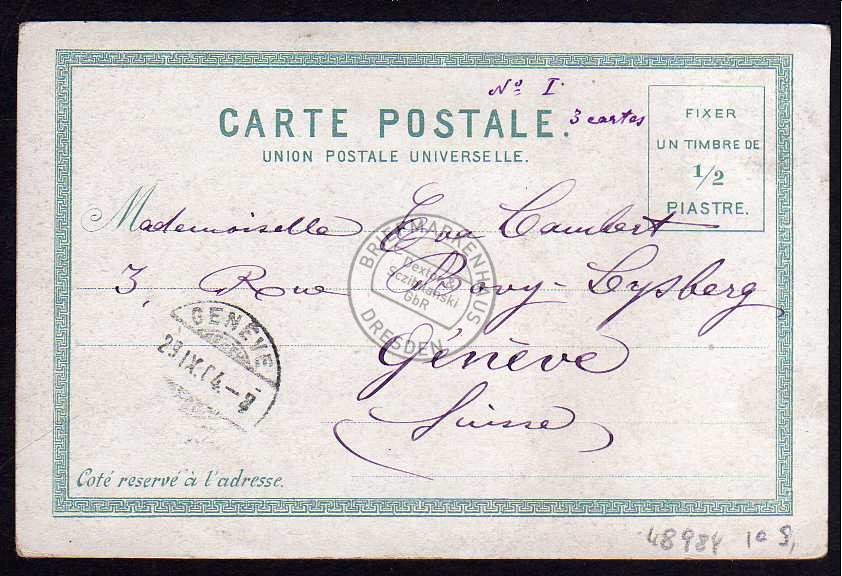 Nº I.
3 cartes
CARTE POSTALE.
UNION POSTALE UNIVERSELLE.
FIXER
UN TIMBRE DE
1/2
PIASTRE.
Mademoiselle Eva Cambert
3, Rue Bovy-Lysberg
Génève
Suisse
GENÈVE
29 IX.04.-
BRIEFMARKENHAUS
Dextor &
Sczibilanski
GbR
DRESDEN
Coté reservé à l'adresse.
48984 10